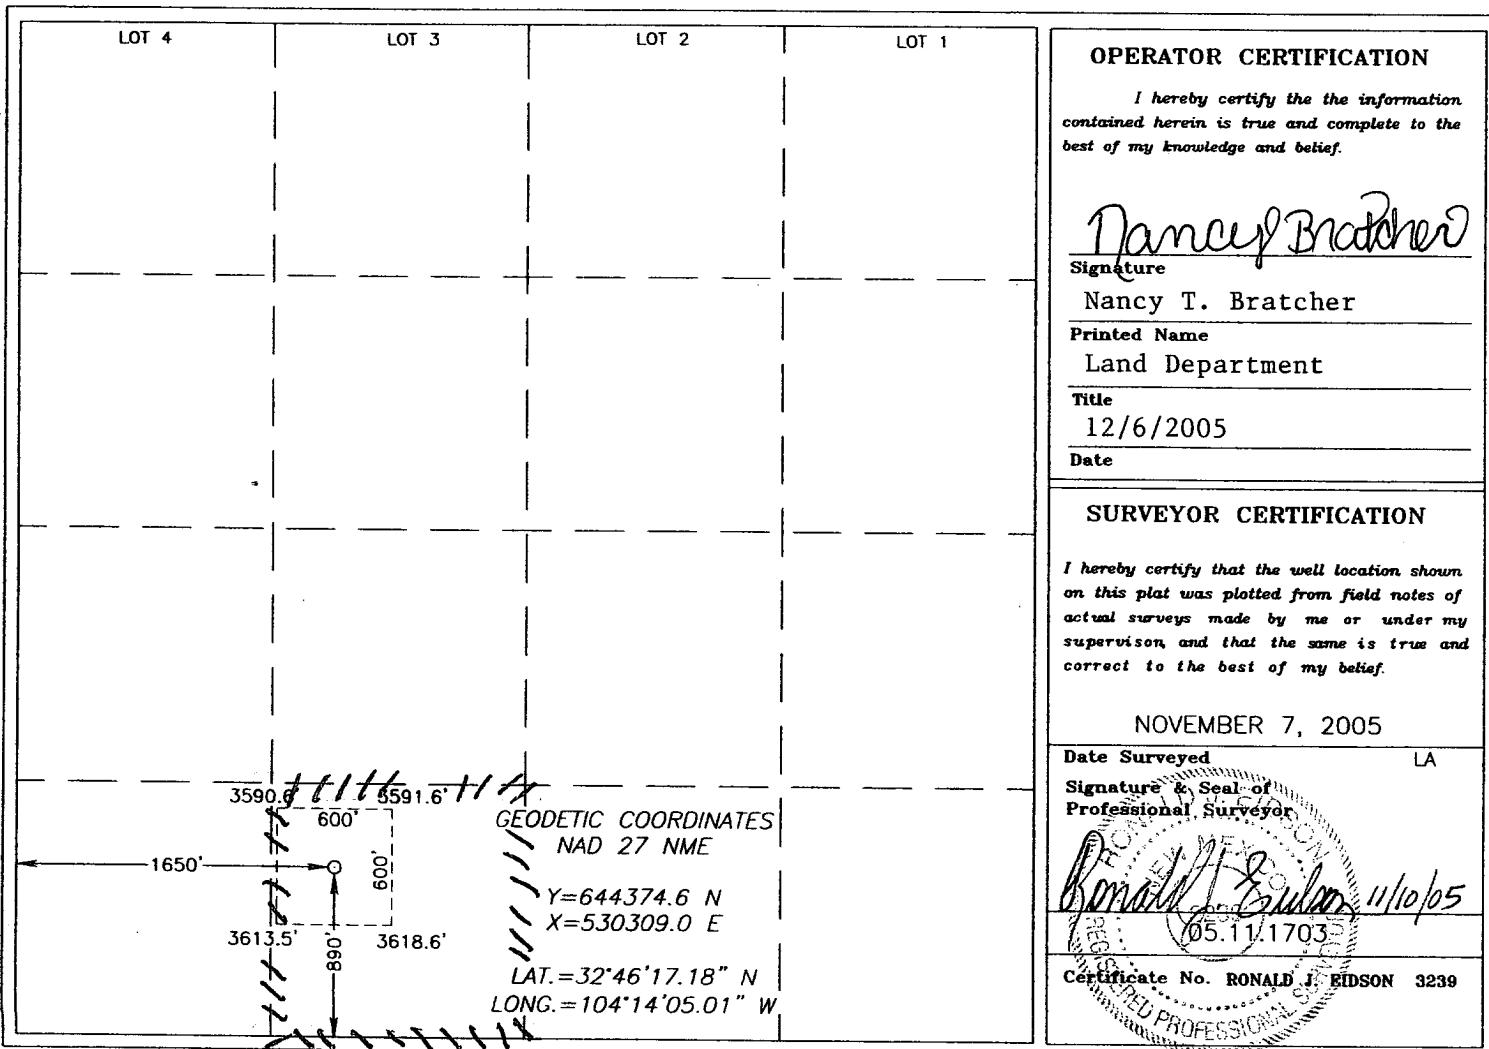 LOT 4
LOT 3
LOT 2
LOT 1
3590.6'
3591.6'
600'
600'
1650'
3613.5'
3618.6'
890'
GEODETIC COORDINATES
NAD 27 NME
Y=644374.6 N
X=530309.0 E
LAT.=32°46'17.18" N
LONG.=104°14'05.01" W
OPERATOR CERTIFICATION
I hereby certify the the information
contained herein is true and complete to the
best of my knowledge and belief.
Nancy Bratcher
Signature
Nancy T. Bratcher
Printed Name
Land Department
Title
12/6/2005
Date
SURVEYOR CERTIFICATION
I hereby certify that the well location shown
on this plat was plotted from field notes of
actual surveys made by me or under my
supervison, and that the same is true and
correct to the best of my belief.
NOVEMBER 7, 2005
Date Surveyed LA
Signature & Seal of
Professional Surveyor
RONALD J. EIDSON
NEW MEXICO
3239
REGISTERED PROFESSIONAL SURVEYOR
Ronald J Eidson 11/10/05
05.11.1703
Certificate No. RONALD J. EIDSON 3239